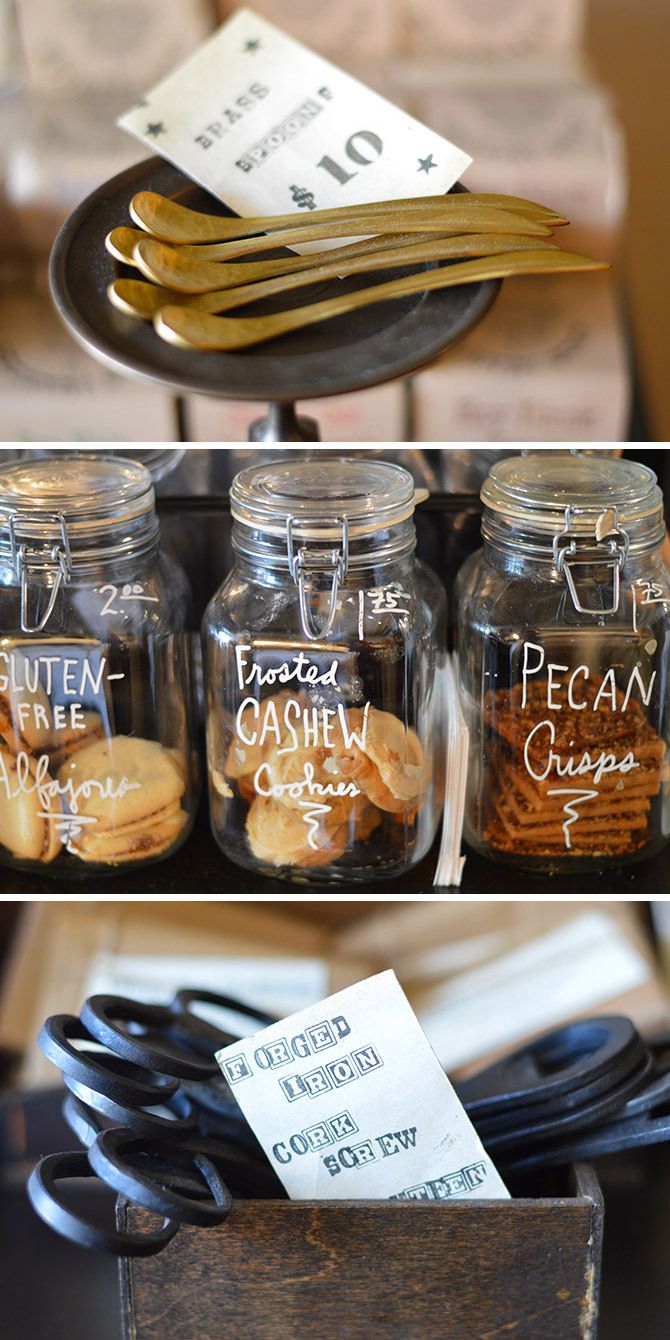 BRASS
SPOON F
$10
2.00
GLUTEN-
FREE
Alfajores
1.75
Frosted
CASHEW
Cookies
1.75
PECAN
Crisps
FORGED
IRON
CORK
SCREW